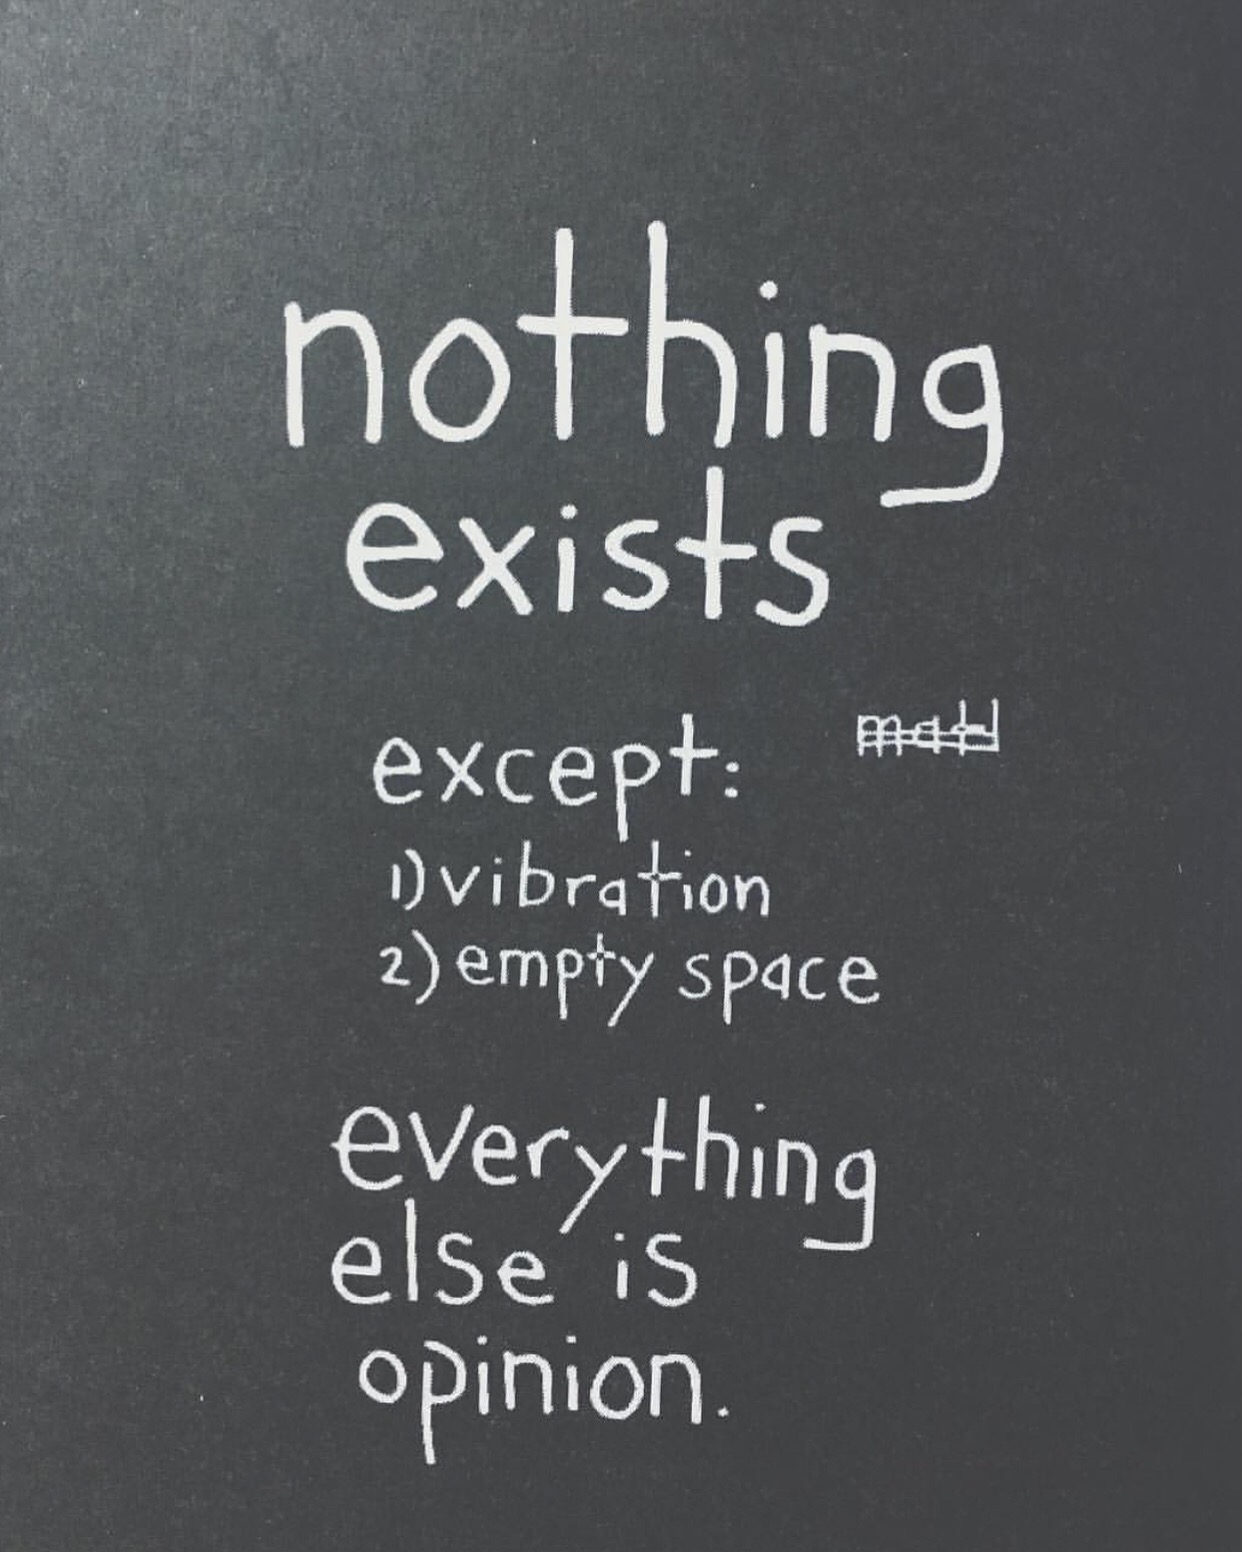 nothing
exists
except:
1) vibration
2) empty space
everything
else is
opinion.